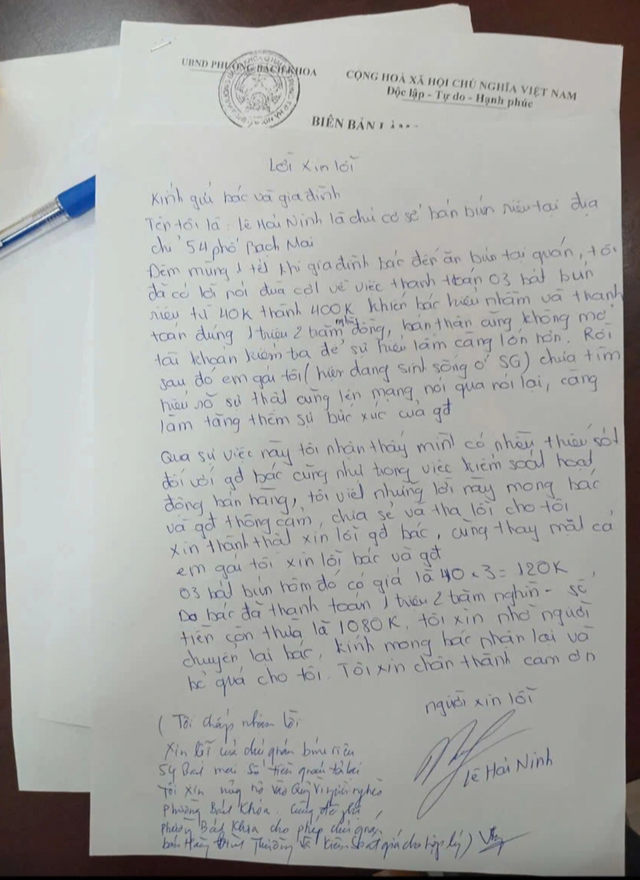 UBND PHƯỜNG BÁCH KHOA
CỘNG HOÀ XÃ HỘI CHỦ NGHĨA VIỆT NAM
Độc lập - Tự do - Hạnh phúc
BIÊN BẢN
Lời xin lỗi
Kính gửi bác và gia đình
Tên tôi là: Lê Hải Ninh là chủ cơ sở bán bún riêu tại địa
chỉ 54 phố Bạch Mai
Đêm mùng 1 tết khi gia đình bác đến ăn bún tại quán, tôi
đã có lời nói đùa cợt về việc thanh toán 03 bát bún
riêu từ 40K thành 400K khiến bác hiểu nhầm và thanh
toán đúng 1 triệu 2 trăm nghìn đồng, bản thân cũng không mở
tài khoản kiểm tra để sự hiểu lầm càng lớn hơn. Rồi
sau đó em gái tôi (hiện đang sinh sống ở SG) chưa tìm
hiểu rõ sự thật cũng lên mạng nói qua nói lại, càng
làm tăng thêm sự bức xúc của gđ
Qua sự việc này tôi nhận thấy mình có nhiều thiếu sót
đối với gđ bác cũng như trong việc kiểm soát hoạt
động bán hàng, tôi viết những lời này mong bác
và gđ thông cảm, chia sẻ và tha lỗi cho tôi
Xin thành thật xin lỗi gđ bác, cũng thay mặt cả
em gái tôi xin lỗi bác và gđ
03 bát bún hôm đó có giá là 40 x 3 = 120K
Do bác đã thanh toán 1 triệu 2 trăm nghìn - số
tiền còn thừa là 1080K, tôi xin nhờ người
chuyển lại bác, kính mong bác nhận lại và
bỏ quá cho tôi. Tôi xin chân thành cảm ơn
người xin lỗi
Lê Hải Ninh
(Tôi chấp nhận lời
xin lỗi của chủ quán bún riêu
54 Bạch Mai Số tiền quán trả lại
Tôi xin ủng hộ vào Quỹ Vì người nghèo
Phường Bách Khoa. Cũng đề nghị
phường Bách Khoa cho phép chủ quán
bán hàng bình thường và kiểm soát giá cho hợp lý)